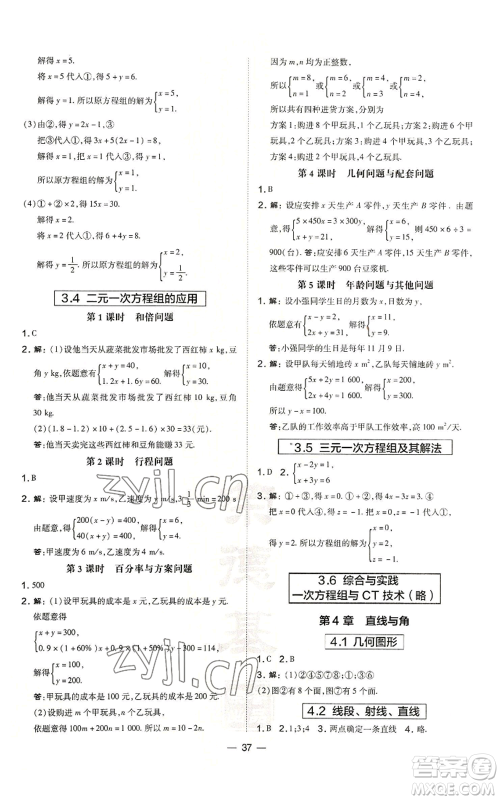 解得 x=5.
将 x=5 代入①，得 5+y=6.
解得 y=1. 所以原方程组的解为{x=5, y=1.
(3)由②，得 y=2x-1③.
将③代入①，得 3x+5(2x-1)=8.
解得 x=1.
将 x=1 代入③，得 y=1.
所以原方程组的解为{x=1, y=1.
(4)①+②×2，得 9x=9.
解得 x=1.
将 x=1 代入②，得 3-2y=2.
解得 y=1/2. 所以原方程组的解为{x=1, y=1/2.
3.4 二元一次方程组的应用
第 1 课时 和倍问题
1. C
2. 解：(1)设他当天从蔬菜批发市场批发了西红柿 x kg，豆角 y kg，依题意有{x+y=40, 1.2x+1.6y=60. 解得{x=10, y=30.
答：他当天从蔬菜批发市场批发了西红柿 10 kg，豆角 30 kg.
(2)(1.8-1.2)×10+(2.5-1.6)×30=33(元).
答：他当天卖完这些西红柿和豆角能赚 33 元.
第 2 课时 行程问题
1. B
2. 解：设甲速度为 x m/s，乙速度为 y m/s，3 1/3 min=200 s，
由题意，得{200(x-y)=400, 40(x+y)=400. 解得{x=6, y=4.
答：甲速度为 6 m/s，乙速度为 4 m/s.
第 3 课时 百分率与方案问题
1. 500
2. 解：(1)设甲玩具的成本是 x 元，乙玩具的成本是 y 元.
由题意，得
{x+y=300, 0.9×(1+60%)x+0.9×(1+50%)y-300=114. 解得{x=100, y=200.
答：甲玩具的成本是 100 元，乙玩具的成本是 200 元.
(2)设购进 m 个甲玩具，n 个乙玩具.
依题意得 100m+200n=1 000，所以 m=10-2n.
因为 m，n 均为正整数，
所以{m=8, n=1 或{m=6, n=2 或{m=4, n=3 或{m=2, n=4.
所以共有四种进货方案.
方案 1：购进 8 个甲玩具，1 个乙玩具；
方案 2：购进 6 个甲玩具，2 个乙玩具；
方案 3：购进 4 个甲玩具，3 个乙玩具；
方案 4：购进 2 个甲玩具，4 个乙玩具.
第 4 课时 几何问题与配套问题
1. B
2. 解：设应安排 x 天生产 A 零件，y 天生产 B 零件.
依题意，得{5×450x=3×300y, x+y=21. 解得{x=6, y=15. 则 450×6÷3=900(台). 答：应安排 6 天生产 A 零件，15 天生产 B 零件，这些零件可以组装 900 台豆浆机.
第 5 课时 年龄问题与其他问题
1. D
2. 解：设小强同学生日的月数为 x，日数为 y，
依题意有{x-y=2, 2x+y=31. 解得{x=11, y=9.
答：小强同学的生日是 11 月 9 日.
3. 解：设甲队每天铺砖 x m²，乙队每天铺砖 y m²，
依题意有{5x+2y=1 600, 4x+3y=1 600. 解得{x=y=
答：乙队的工作效率高于甲队工作效率.
3.5 三元一次方程组及其解法
1. 7 -4 2. {x-2y=1, x+y=1.
3. 解：①+③，得 3x=6，解得 x=2. ①+②，得 3x+3y=9，即 x+y=3④. 将 x=2 代入④，得 y=1. 将 x=2，y=1 代入③，得 z=-1. 所以原方程组的解为{x=2, y=1, z=-1.
3.6 综合与实践
一次方程组与 CT 技术（略）
第 4 章 直线与角
4.1 几何图形
1. C 2. B
3. 解：(1)①②④⑦⑧；①；③⑥
(2)图②有 5 个面，图③有 2 个面.
4.2 线段、射线、直线
1. B 2. B 3. 两点确定一条直线 4. 略.
37
zyjl.cn